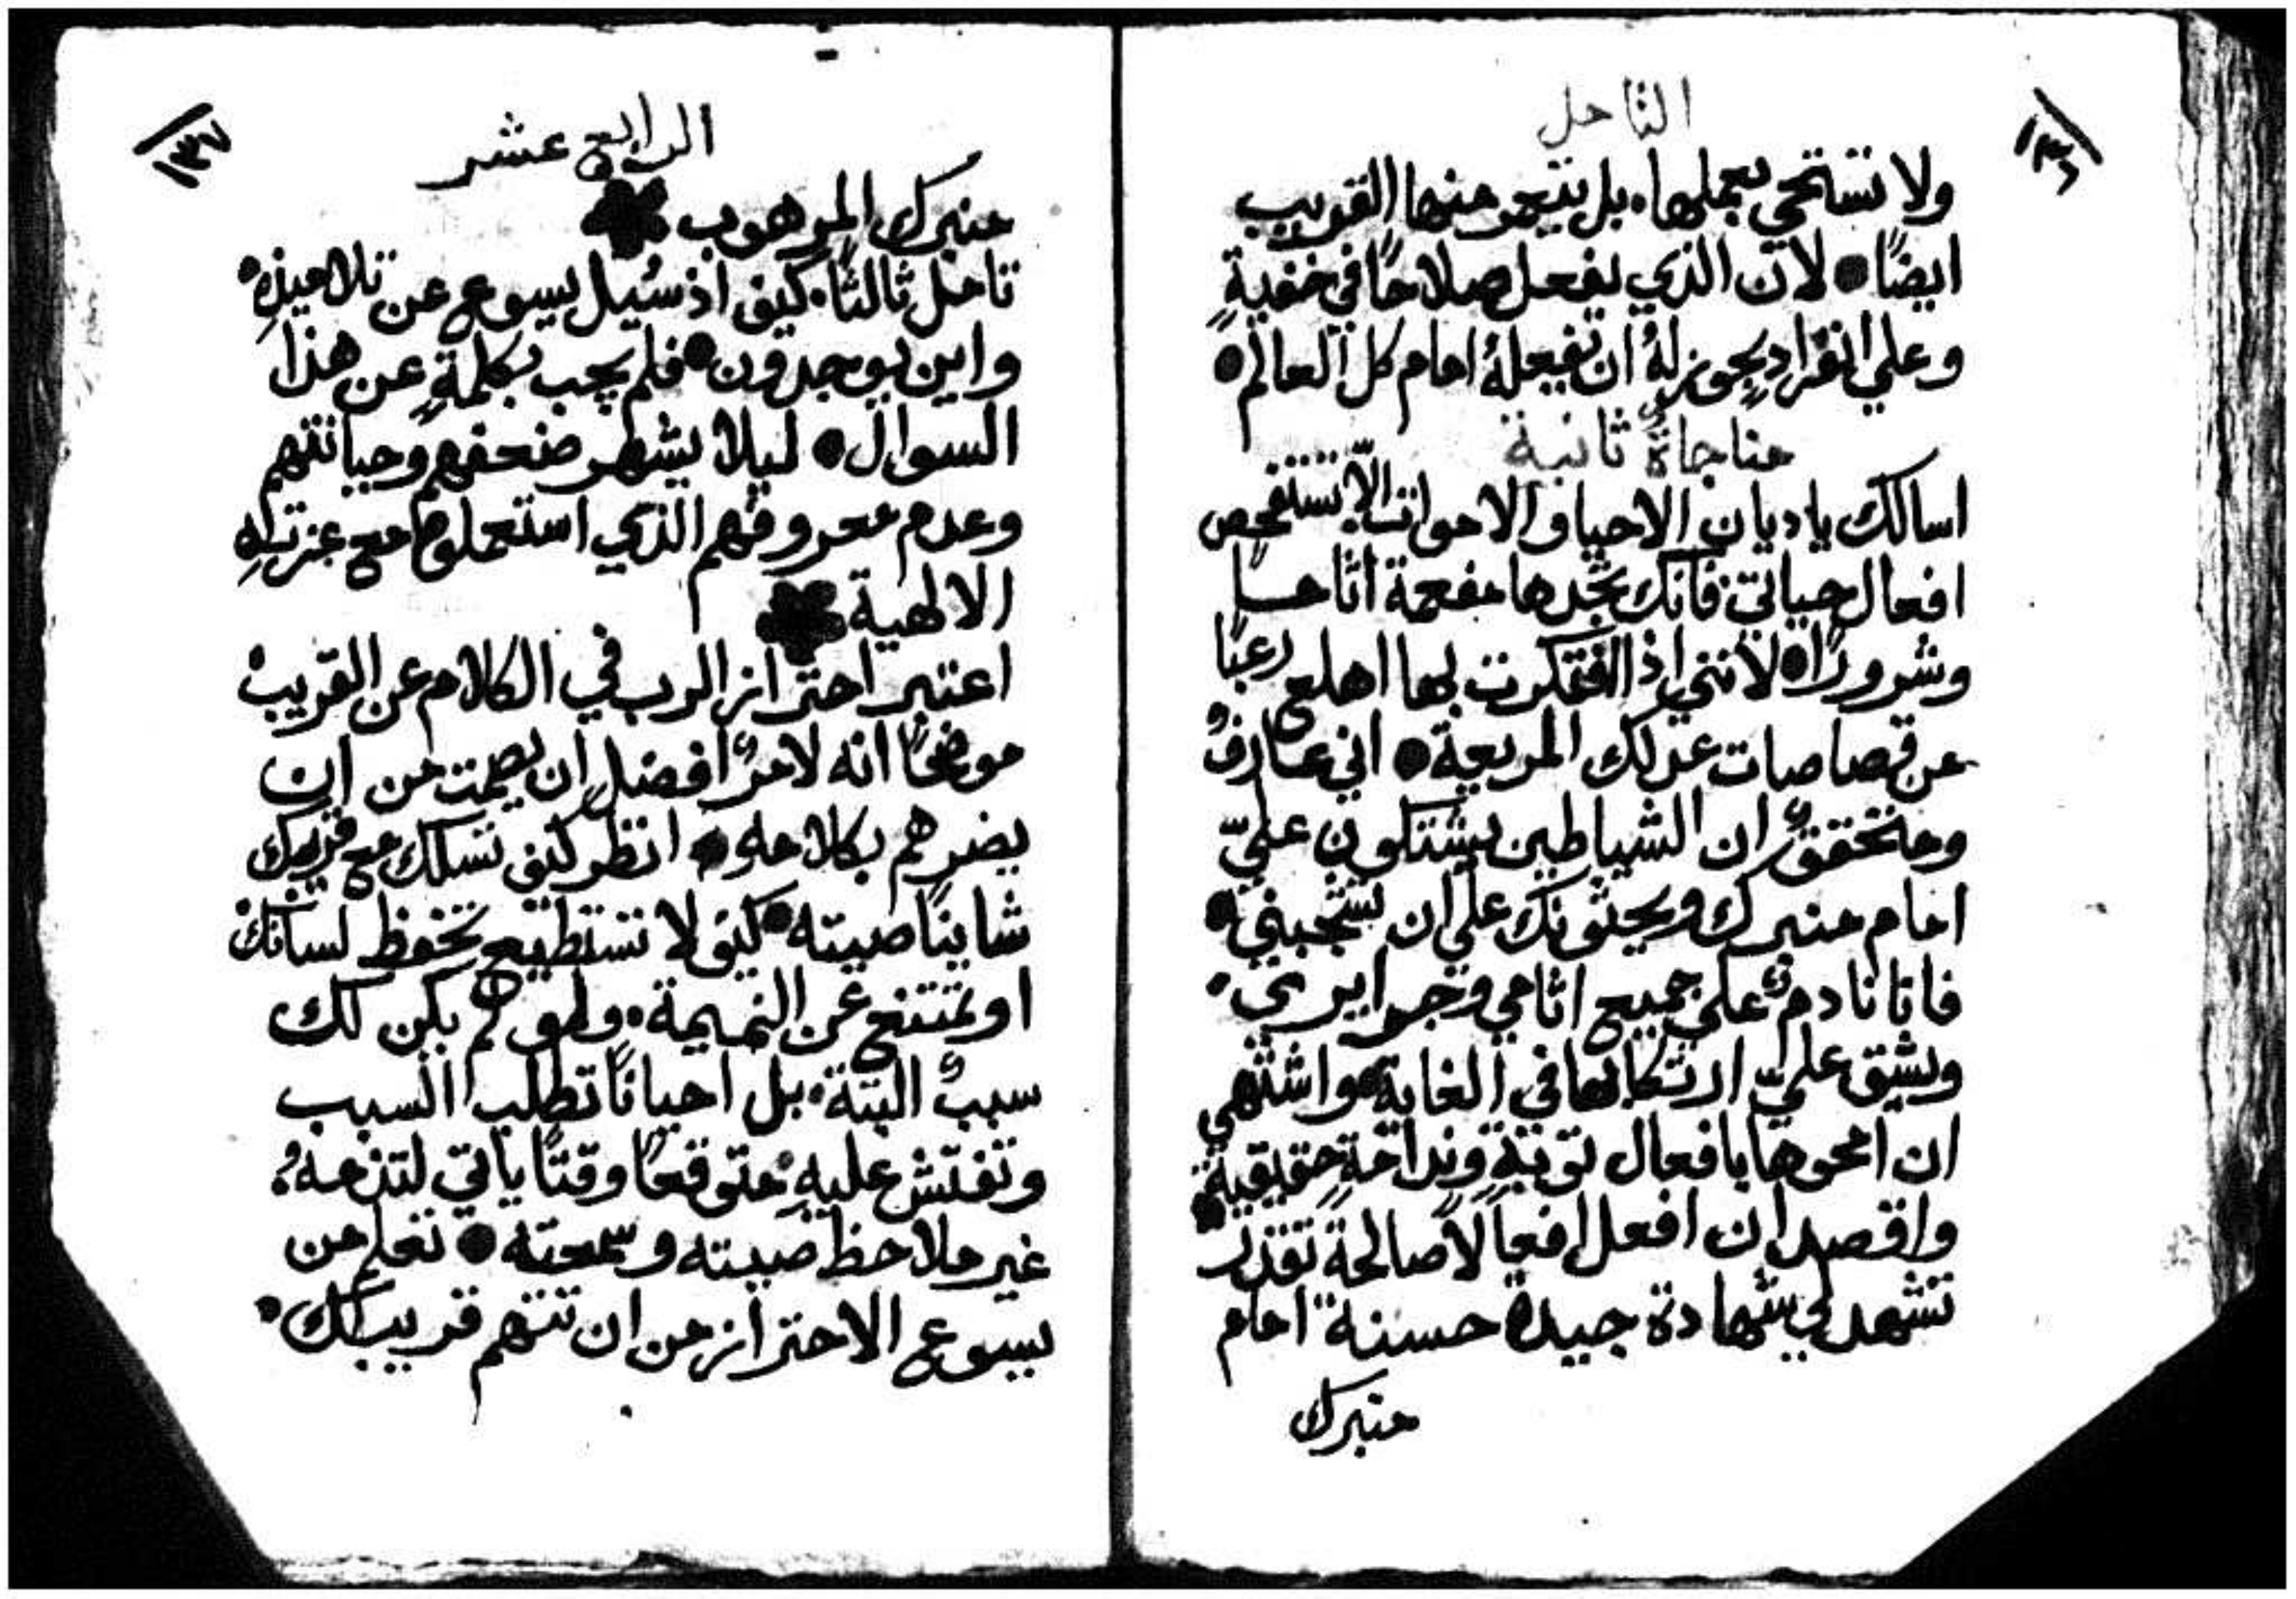 التامل
١٣٦
ولا تستحي بعملها. بل ينتفع منها القريب
ايضًا ● لان الذي يفعل صلاحًا في خفيةٍ
وعلي انفرادٍ يجوز لهُ ان يفعلهُ امام كل العالم ●
مناجاةٌ ثانية
اسالك يا ديان الاحيا والاموات الّا تستفحص
افعال حياتي فانك تجدها مفعمة اثاما
وشرورًا ● لانني اذ افتكرت بها اهلع رعبًا
من قصاصات عدلك المريعة ● اني عارفٌ
ومتحققٌ ان الشياطين يشتكون عليّ
امام منبرك ويحثونك علي ان تشجبني ●
فانا نادمٌ علي جميع اثامي وجرايري.
ويشق عليّ ارتكابها في الغاية واشتهي
ان امحوها بافعال توبةٍ وندامةٍ حقيقية ●
واقصد ان افعل افعالًا صالحةً تقدر
تشهد لي شهادة جيدة حسنة امام
منبرك
الرابع عشر
١٣٧
منبرك المرهوب
تامل ثالثًا. كيف اذ سُيل يسوع عن تلاميذهِ
واين يوجدون ● فلم يجب بكلمةٍ عن هذا
السوال ● ليلا يشهر ضعفهم وجبانتهم
وعدم معروفهم الذي استعملوه مع عزتهِ
الالهية
اعتبر احتراز الرب في الكلام عن القريب
موضحًا انه لامرٌ افضل ان يصمت من ان
يضرهم بكلامه ● انظر كيف تسلك مع قريبك
شاينًا صيته ● كيف لا تستطيع تحفظ لسانك
او تمتنع عن النميمة. ولو لم يكن لك
سببٌ البتة. بل احيانًا تطلب السبب
وتفتش عليهِ متوقعًا وقتًا ياتي لتذمهُ.
غير ملاحظ صيته وسمعته ● تعلم من
يسوع الاحتراز من ان تتهم قريبك.